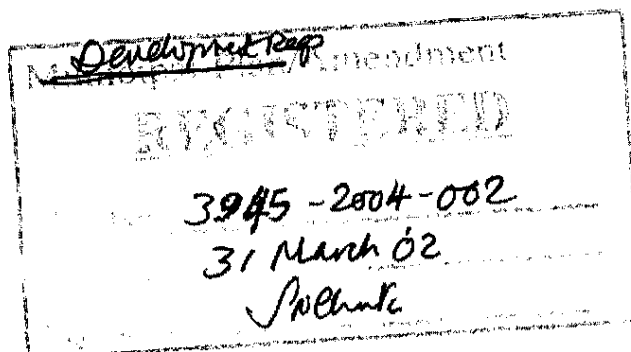 Development Regs
Municipal Plan/Amendment
REGISTERED
3945-2004-002
31 March 02